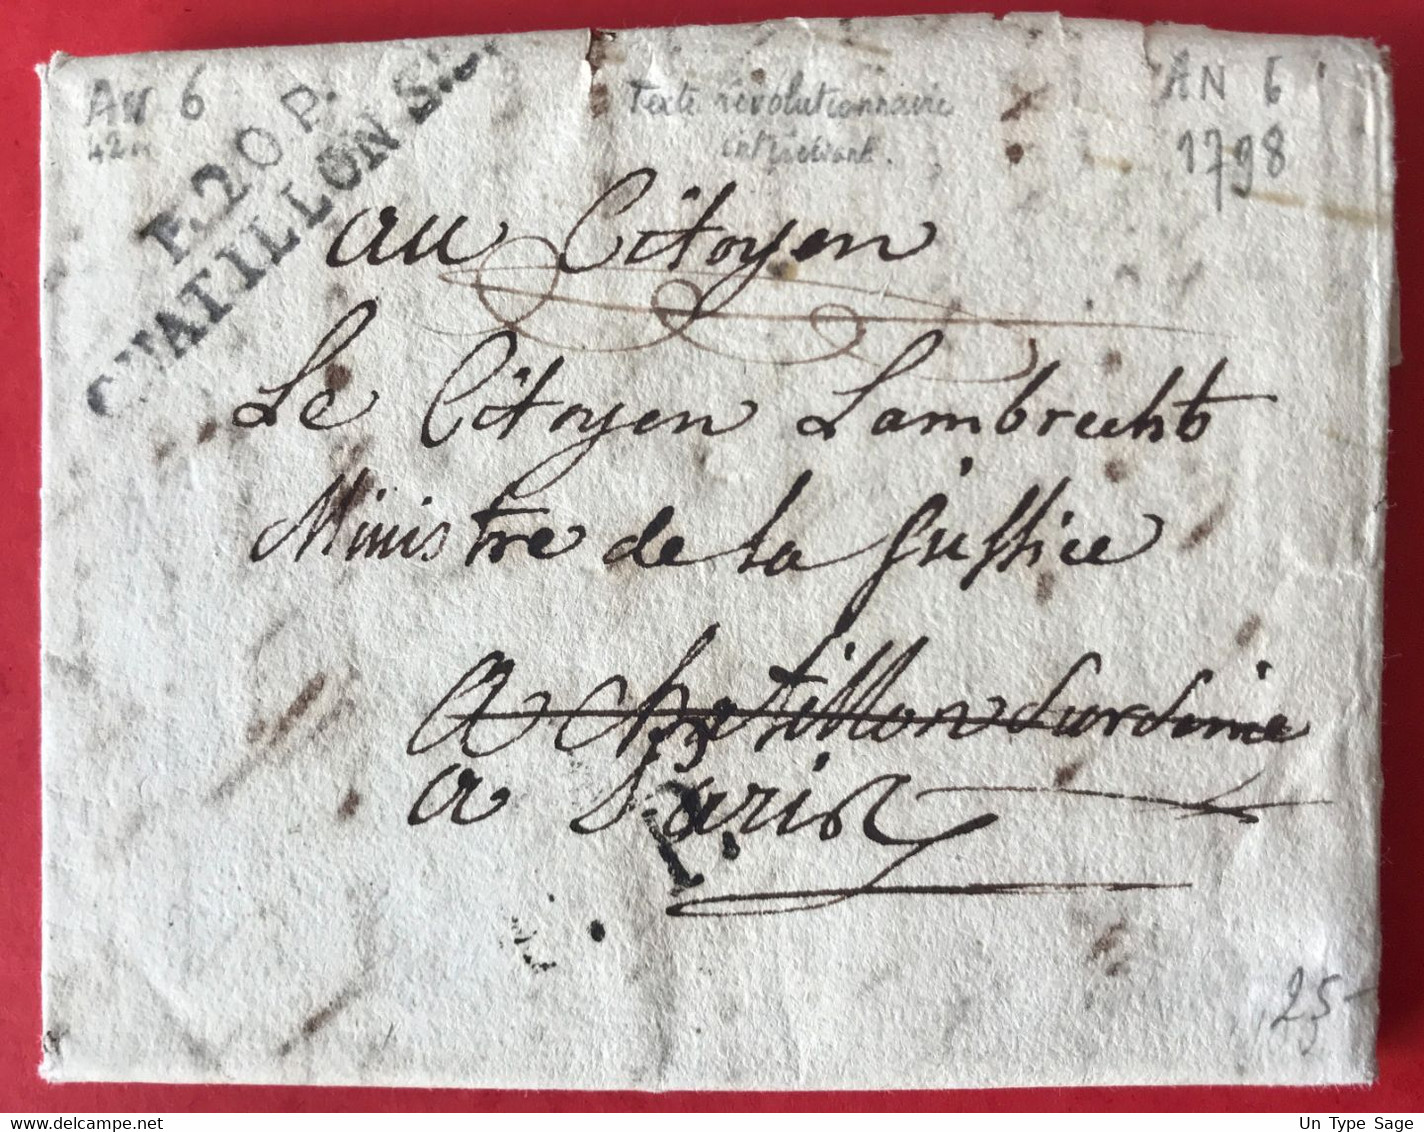 An 6
42
P.20.P.
CHATILLON S.
Texte révolutionnaire
intéressant.
AN 6
1798
au Citoyen
Le Citoyen Lambrechts
Ministre de la Justice
a Chatillon Sur Seine
a Paris
25-
Un Type Sage